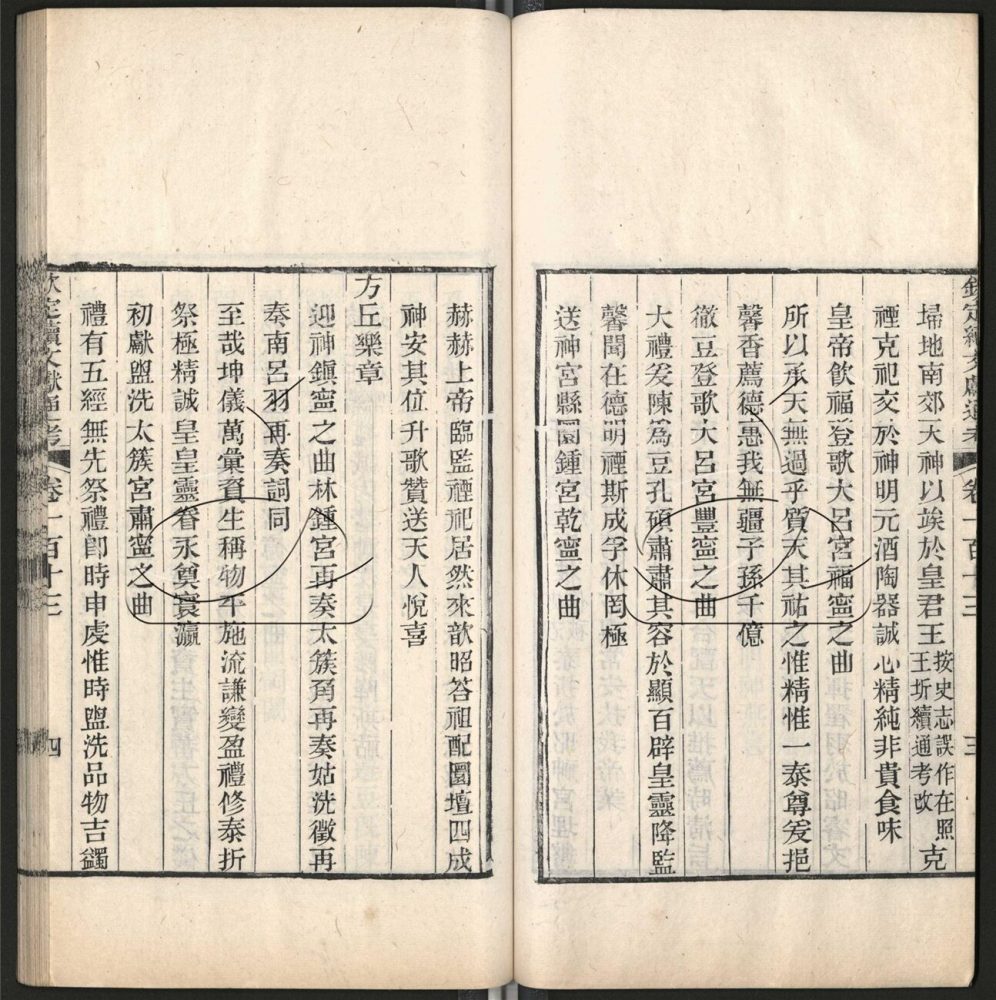 欽定續文獻通考 卷一百十三 三
埽地南郊大神以竢於皇君王按史志誤作在照王圻續通考改克
禋克祀交於神明元酒陶器誠心精純非貴食味
皇帝飲福登歌大呂宮福寧之曲
所以承天無過乎質天其祐之惟精惟一泰尊爰挹
馨香薦德惠我無疆子孫千億
徹豆登歌大呂宮豐寧之曲
大禮爰陳為豆孔碩肅肅其容於顯百辟皇靈降監
馨聞在德明禋斯成孚休罔極
送神宮縣圜鍾宮乾寧之曲
赫赫上帝臨監禋祀居然來歆昭答祖配圜壇四成
神安其位升歌贊送天人悅喜
方丘樂章
迎神鎮寧之曲林鍾宮再奏太簇角再奏姑洗徵再
奏南呂羽再奏詞同
至哉坤儀萬彙資生稱物平施流謙變盈禮修泰折
祭極精誠皇皇靈眷永奠寰瀛
初獻盥洗太簇宮肅寧之曲
禮有五經無先祭禮卽時申虔惟時盥洗品物吉蠲
欽定續文獻通考 卷一百十三 四